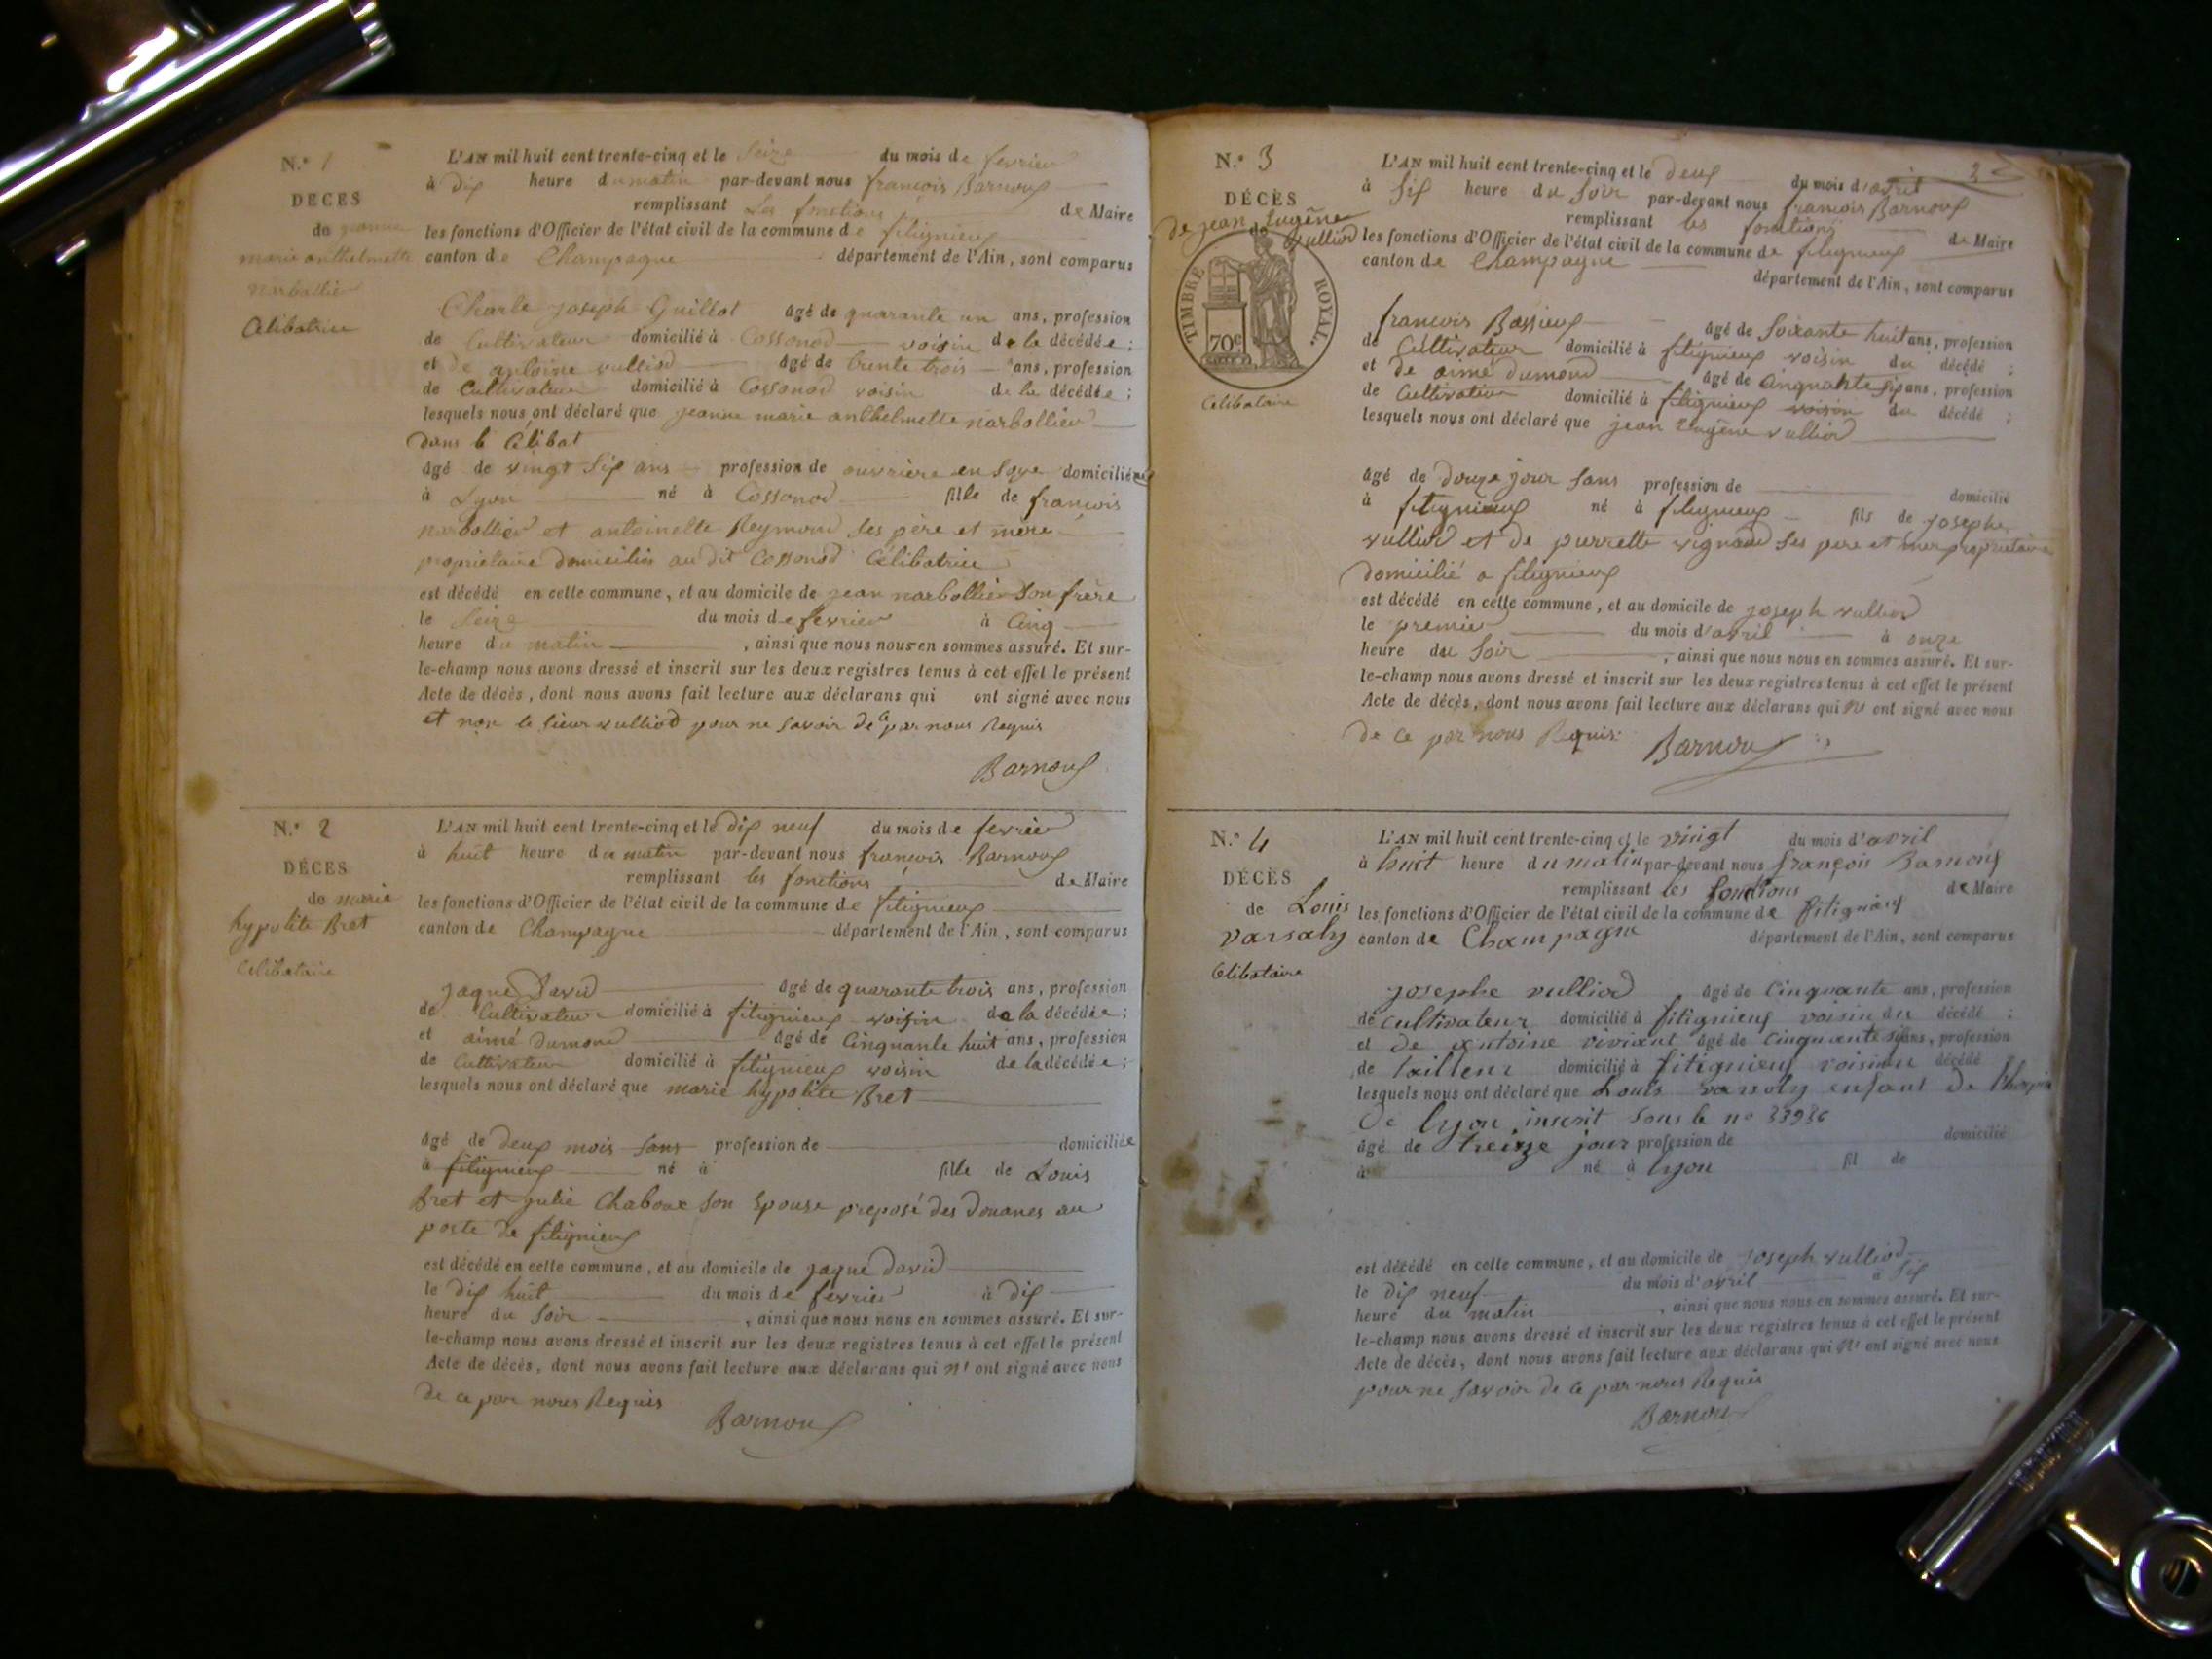 N.° 1
DECES
de jeanne
marie anthelmette
narbollier
Célibatrice
L'AN mil huit cent trente-cinq et le Seize du mois de fevrier
à dix heure du matin par-devant nous francois Barnoux
remplissant les fonctions de Maire
les fonctions d'Officier de l'état civil de la commune de fitignieux
canton de Champagne département de l'Ain, sont comparus
Charle joseph Guillot âgé de quarante un ans, profession
de Cultivateur domicilié à Cossonod voisin de la décédée ;
et de antoine vulliod âgé de trente trois ans, profession
de Cultivateur domicilié à Cossonod voisin de la décédée ;
lesquels nous ont déclaré que jeanne marie anthelmette narbollier
dans le Célibat
âgé de vingt six ans profession de ouvrière en soye domiciliée
à Lyon né à Cossonod fille de francois
narbollier et antoinette Reymond ses père et mère
propriétaire domiciliés au dit Cossonod Célibatrice
est décédé en cette commune, et au domicile de jean narbollier son frère
le Seize du mois de fevrier à Cinq
heure du matin , ainsi que nous nous en sommes assuré. Et sur-
le-champ nous avons dressé et inscrit sur les deux registres tenus à cet effet le présent
Acte de décès, dont nous avons fait lecture aux déclarans qui ont signé avec nous
et non le sieur vulliod pour ne savoir de ce par nous Requis
Barnoux
N.° 2
DÉCES
de marie
hypolite Bret
Célibataire
L'AN mil huit cent trente-cinq et le dix neuf du mois de fevrier
à huit heure du matin par-devant nous francois Barnoux
remplissant les fonctions de Maire
les fonctions d'Officier de l'état civil de la commune de fitignieux
canton de Champagne département de l'Ain, sont comparus
jaque David âgé de quarante trois ans, profession
de Cultivateur domicilié à fitignieux voisin de la décédée ;
et aimé dumond âgé de Cinquante huit ans, profession
de Cultivateur domicilié à fitignieux voisin de la décédée ;
lesquels nous ont déclaré que marie hypolite Bret
âgé de deux mois sans profession de domiciliée
à fitignieux né à fille de Louis
Bret et julie Chaboux son Epouse preposé des Douanes au
poste de fitignieux
est décédé en cette commune, et au domicile de jaque David
le dix huit du mois de fevrier à dix
heure du soir , ainsi que nous nous en sommes assuré. Et sur-
le-champ nous avons dressé et inscrit sur les deux registres tenus à cet effet le présent
Acte de décès, dont nous avons fait lecture aux déclarans qui n' ont signé avec nous
de ce par nous Requis
Barnoux
2
N.° 3
DÉCÈS
de jean Eugène
de vulliod
TIMBRE ROYAL.
70c
Célibataire
L'AN mil huit cent trente-cinq et le deux du mois d'avril
à six heure du soir par-devant nous francois Barnoux
remplissant les fonctions de Maire
les fonctions d'Officier de l'état civil de la commune de fitignieux
canton de Champagne département de l'Ain, sont comparus
francois Bassieux âgé de Soixante huit ans, profession
de Cultivateur domicilié à fitignieux voisin du décédé ;
et de aimé dumond âgé de Cinquante six ans, profession
de Cultivateur domicilié à fitignieux voisin du décédé ;
lesquels nous ont déclaré que jean Eugène vulliod
âgé de douze jour sans profession de domicilié
à fitignieux né à fitignieux fils de josephe
vulliod et de pierrette vignaud ses pere et mere propriétaire
domicilié a fitignieux
est décédé en cette commune, et au domicile de joseph vulliod
le premier du mois d'avril à onze
heure du soir , ainsi que nous nous en sommes assuré. Et sur-
le-champ nous avons dressé et inscrit sur les deux registres tenus à cet effet le présent
Acte de décès, dont nous avons fait lecture aux déclarans qui n' ont signé avec nous
de ce par nous Requis:
Barnoux
N.° 4
DÉCÈS
de Louis
varsaly
Célibataire
L'AN mil huit cent trente-cinq et le vingt du mois d'avril
à huit heure du matin par-devant nous françois Barnoux
remplissant les fonctions de Maire
les fonctions d'Officier de l'état civil de la commune de fitignieux
canton de Champagne département de l'Ain, sont comparus
josephe vulliod âgé de cinquante ans, profession
de cultivateur domicilié à fitignieux voisin du décédé ;
et de antoine viviant âgé de cinquante six ans, profession
de tailleur domicilié à fitignieux voisin du décédé
lesquels nous ont déclaré que Louis varsaly enfant de l'hospice
de lyon inscrit sous le n° 33936
âgé de treize jour profession de domicilié
à né à lyon fil de
est décédé en cette commune, et au domicile de joseph vulliod
le dix neuf du mois d'avril à six
heure du matin , ainsi que nous nous en sommes assuré. Et sur-
le-champ nous avons dressé et inscrit sur les deux registres tenus à cet effet le présent
Acte de décès, dont nous avons fait lecture aux déclarans qui n' ont signé avec nous
pour ne savoir de ce par nous Requis
Barnoux